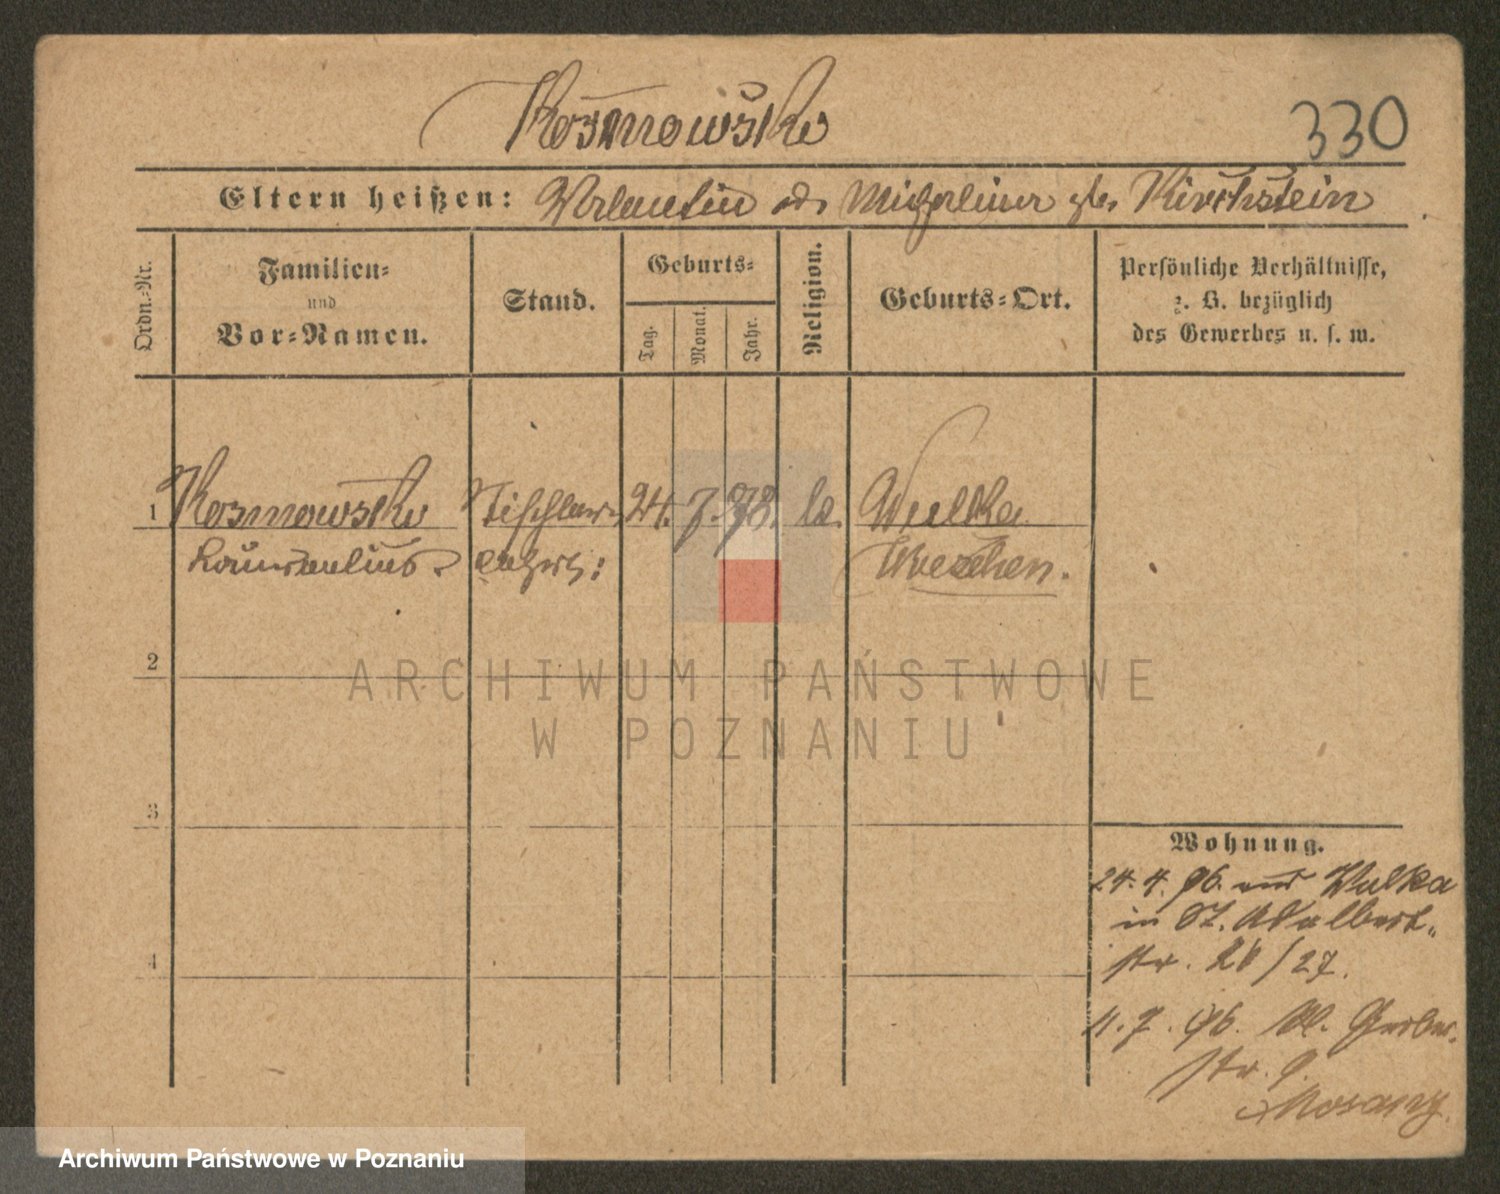 Kosmowski
330
Eltern heißen: Valentin und Michalina geb. Kirchstein
Ordn.-Nr.
Familien-
und
Vor-Namen.
Stand.
Geburts-
Tag.
Monat.
Jahr.
Religion.
Geburts-Ort.
Persönliche Verhältnisse,
z. B. bezüglich
des Gewerbes u. s. w.
1 Kosmowski Tischler- 24. 7. 78. k. Wulka
Wreschen.
2
ARCHIWUM PAŃSTWOWE
W POZNANIU
3
Wohnung.
24. 4. 96. aus Wulka
in St. Adalbert-
str. 26/27.
4
11. 7. 96. Kl. Gerber-
str. 9.
Archiwum Państwowe w Poznaniu